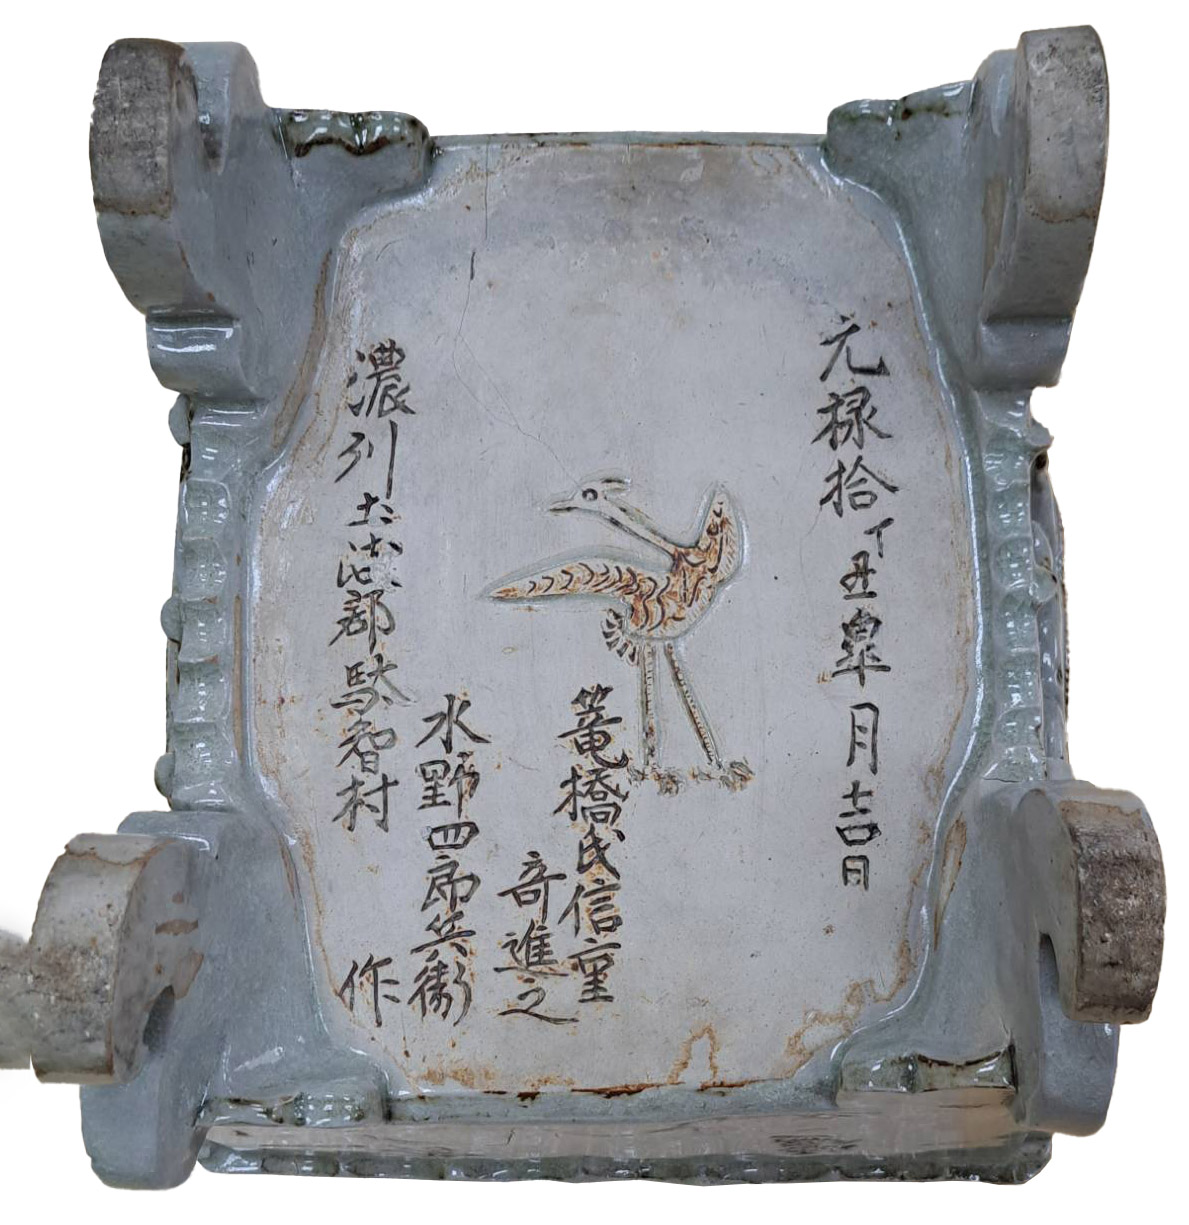 元禄拾丁丑皐月吉日
篭橋氏信重
竒進之
水野四郎兵衛
濃州土岐郡駄智村 作